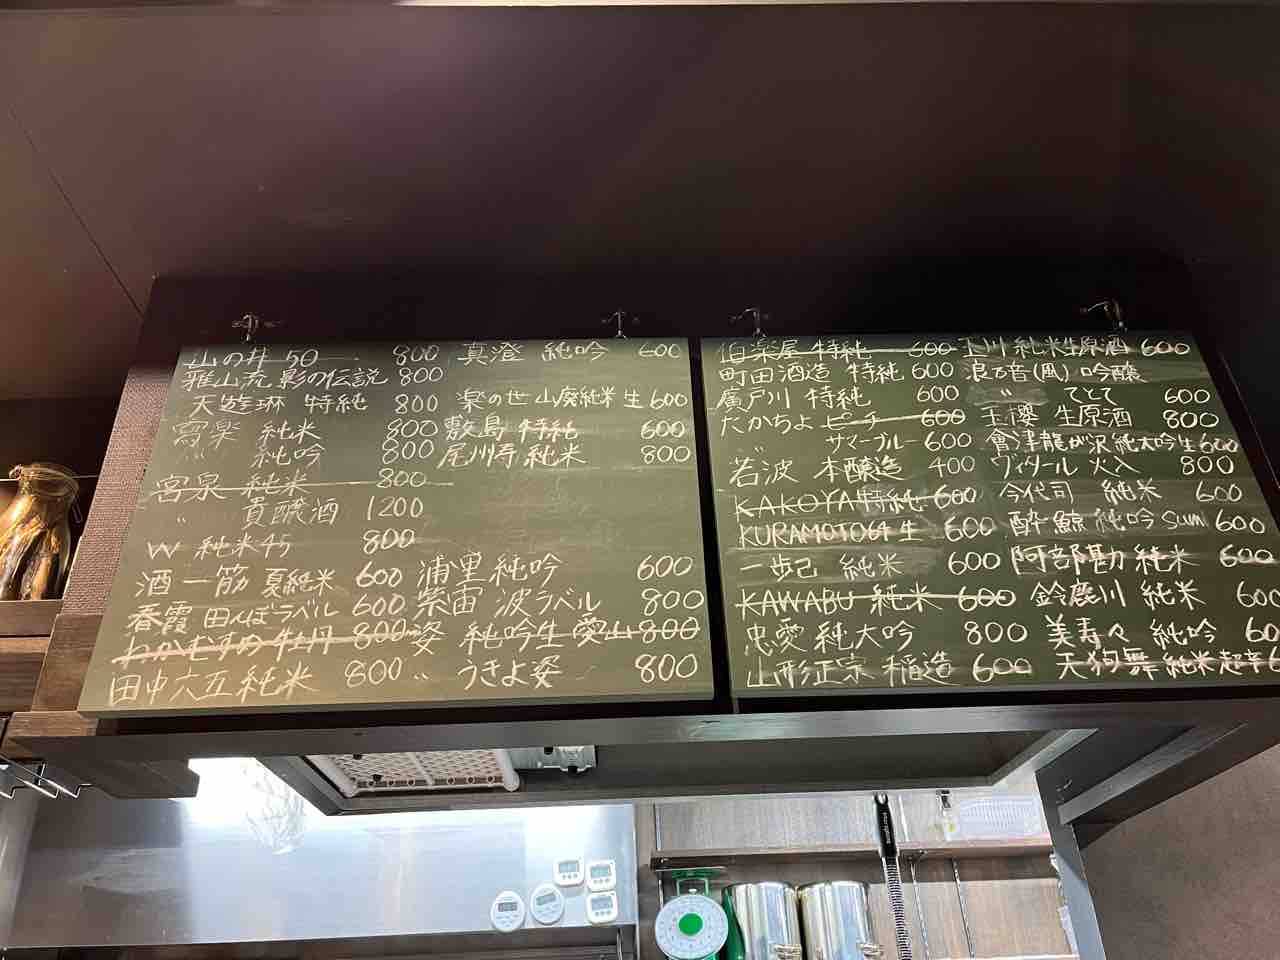 山の井 50 800
雅山流 影の伝説 800
天遊琳 特純 800
寫楽 純米 800
〃 純吟 800
客泉 純米 800
〃 貴醸酒 1200
W 純米45 800
酒一筋 夏純米 600
春霞 田んぼラベル 600
わかむすめ 牡丹 800
田中六五 純米 800
真澄 純吟 600
楽の世 山廃純米 生 600
敷島 特純 600
尾州寿 純米 800
浦里 純吟 600
紫宙 波ラベル 800
姿 純吟生 愛山 800
〃 うきよ姿 800
伯楽屋 特純 600
町田酒造 特純 600
廣戸川 特純 600
たかちよ ピーチ 600
〃 サマーブルー 600
若波 本醸造 400
KAKOYA 特純 600
KURAMOTO64 生 600
一歩己 純米 600
KAWABU 純米 600
忠愛 純大吟 800
山形正宗 稲造 600
玉川 純米生原酒 600
浪乃音(風) 吟醸
〃 てとて 600
玉櫻 生原酒 800
會津龍が沢 純大吟生 600
ヴィタール 火入 800
今代司 純米 600
酔鯨 純吟 sum 600
阿部勘 純米 600
鈴鹿川 純米 600
美寿々 純吟 60
天狗舞 純米 超辛 6